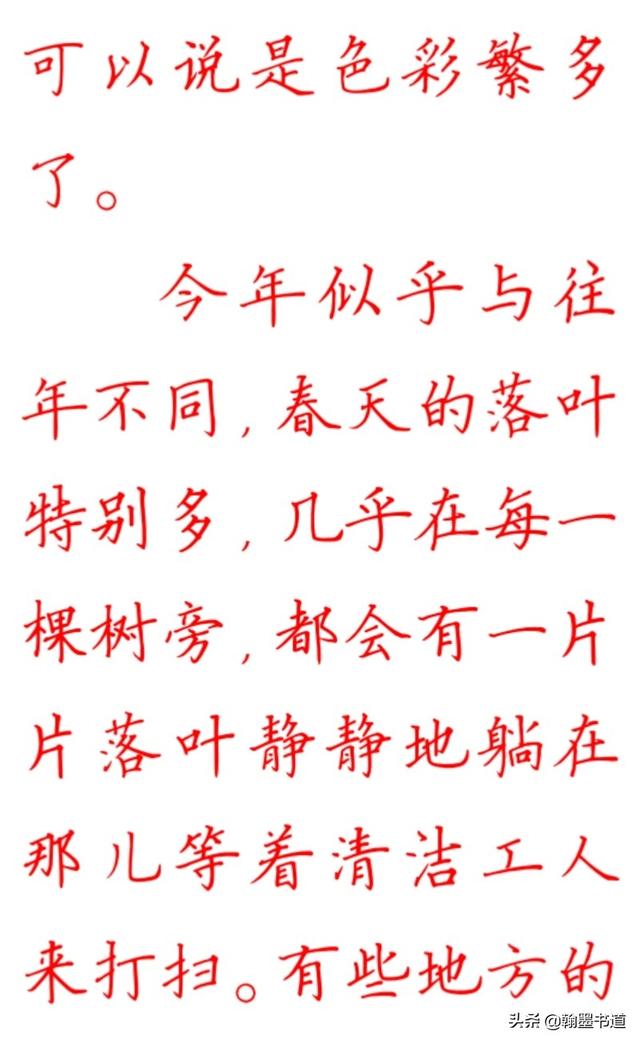 可以说是色彩繁多
了。
今年似乎与往
年不同,春天的落叶
特别多,几乎在每一
棵树旁,都会有一片
片落叶静静地躺在
那儿等着清洁工人
来打扫。有些地方的
头条 @翰墨书道